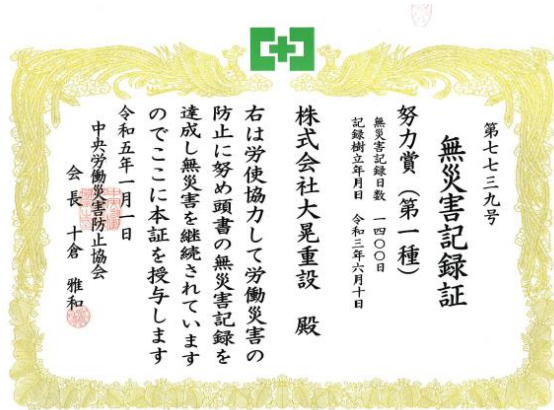 第七七三九号
無災害記録証
努力賞（第一種）
無災害記録日数 一四〇〇日
記録樹立年月日 令和三年六月十日
株式会社大晃重設 殿
右は労使協力して労働災害の
防止に努め頭書の無災害記録を
達成し無災害を継続されています
のでここに本証を授与します
令和五年一月一日
中央労働災害防止協会
会長 十倉 雅和